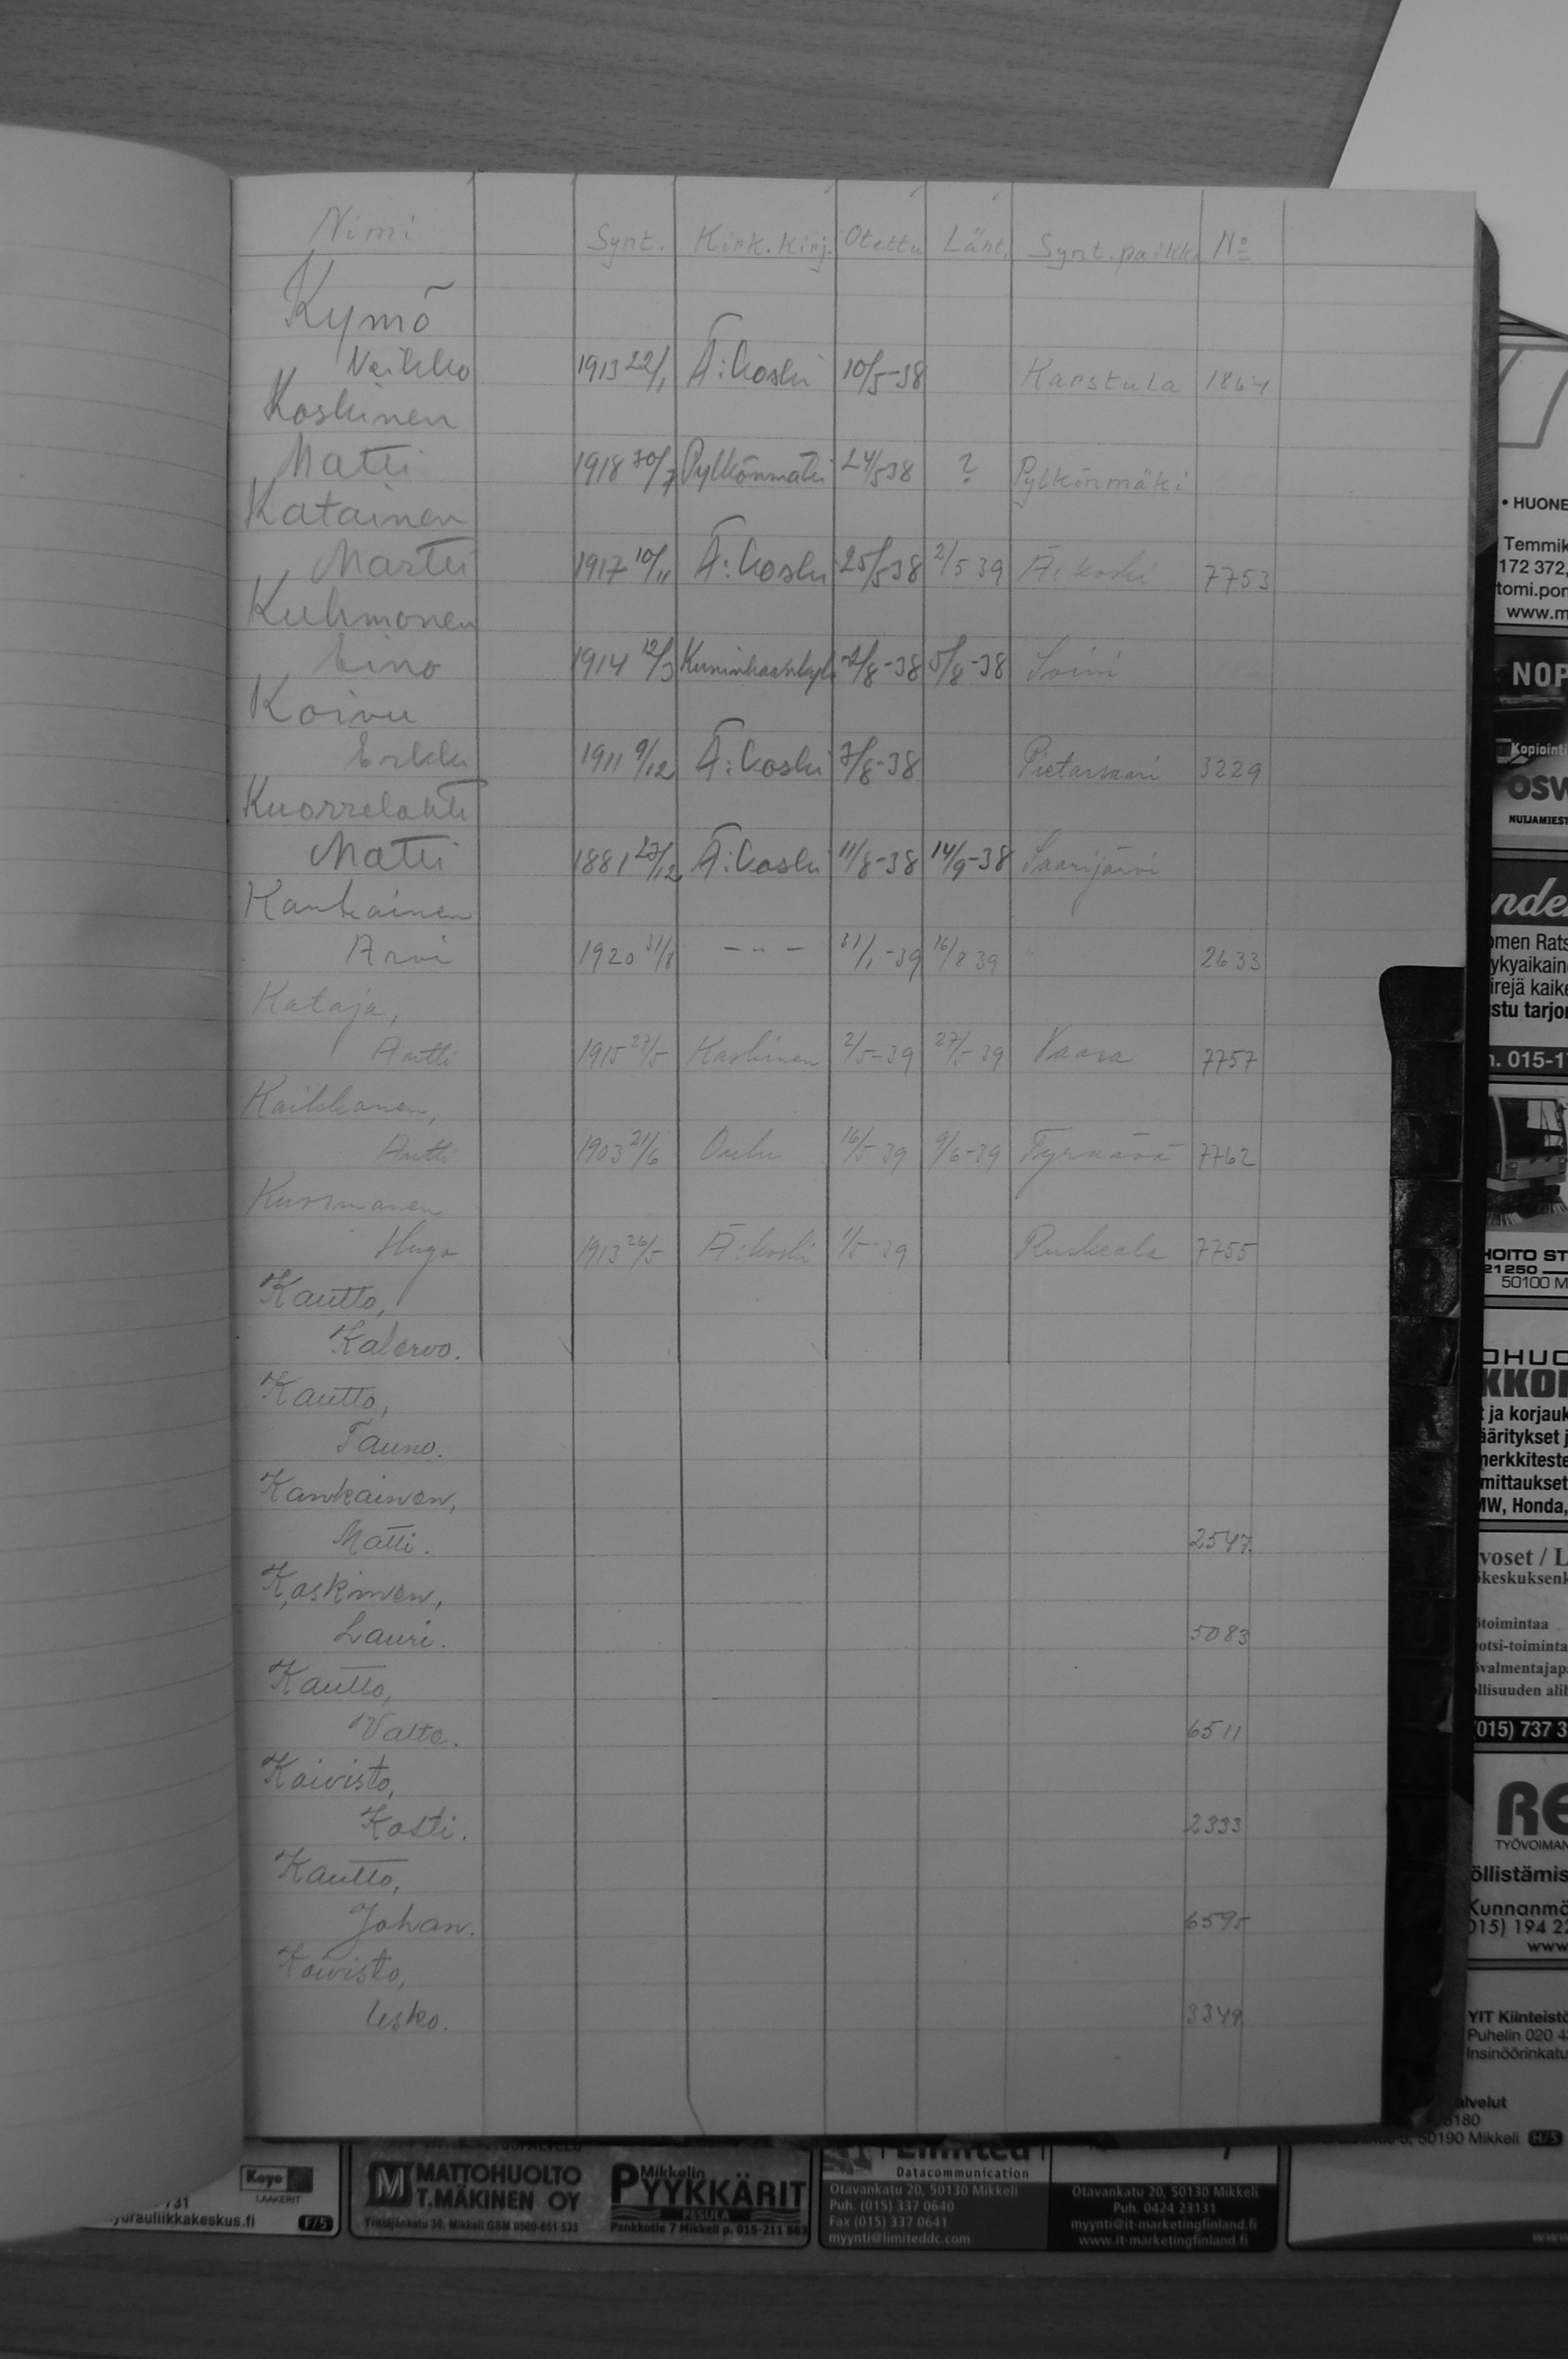 Nimi Synt. Kirk.kirj. Otettu Läht. Synt.paikka No
Kymö
Veikko 1913 22/1 Ä:koski 10/5-38 Karstula 1864
Koskinen
Matti 1918 30/7 Pylkönmäki 24/5 38 ? Pylkönmäki
Katainen
Martti 1917 10/11 Ä:koski 25/5 38 2/5 39 Ä:koski 7753
Kuhmonen
Eino 1914 12/3 2/8-38 5/8-38 Soini
Koivu
Erkki 1911 9/12 Ä:koski 7/8-38 Pietarsaari 3229
Kuorrelahti
Matti 1881 27/12 Ä:koski 11/8-38 14/9-38 Saarijärvi
Kankainen
Arvi 1920 31/8 - " - 31/1-39 16/8 39 2633
Kataja,
Antti 1915 27/5 Kaskinen 2/5-39 27/5-39 Vaasa 7757
Kaikkonen,
Antti 1903 21/6 Oulu 16/5-39 9/6-39 Tyrnävä 7762
Kuosmanen
Hugo 1913 26/5 Ä:koski 1/5-39 Ruskeala 7755
Kautto,
Kalervo.
Kautto,
Tauno.
Kankainen,
Matti. 2547
Koskinen,
Lauri. 5083
Kautto,
Valte. 6511
Koivisto,
Kosti. 2333
Kautto,
Johan. 6595
Koivisto,
Usko. 3349
• HUONE
Temmik
172 372,
tomi.pon
www.m
NOP
Kopiointi
OSW
NUIJAMIEST
nde
omen Rats
ykyaikain
irejä kaike
stu tarjo
. 015-1
HOITO ST
21250
50100 M
OHUO
KKO
t ja korjauk
ääritykset j
merkkiteste
mittaukset
MW, Honda,
voset / L
ökeskuksenk
ötoimintaa
otsi-toiminta
övalmentajap
ollisuuden alih
(015) 737 3
RE
TYÖVOIMAN
öllistämis
Kunnanmä
015) 194 22
www
YIT Kiinteistö
Puhelin 020 43
Insinöörinkatu
alvelut
50190 Mikkeli H/S
Koyo
LAAKERIT
urauliikkakeskus.fi F/5
M MATTOHUOLTO
T.MÄKINEN OY
Yrittäjänkatu 30, Mikkeli GSM 0500-651 533
Mikkelin
PYYKKÄRIT
PESULA
Pankkotie 7 Mikkeli p. 015-211 883
Limited
Datacommunication
Otavankatu 20, 50130 Mikkeli
Puh. (015) 337 0640
Fax (015) 337 0641
myynti@limiteddc.com
Otavankatu 20, 50130 Mikkeli
Puh. 0424 23131
myynti@it-marketingfinland.fi
www.it-marketingfinland.fi